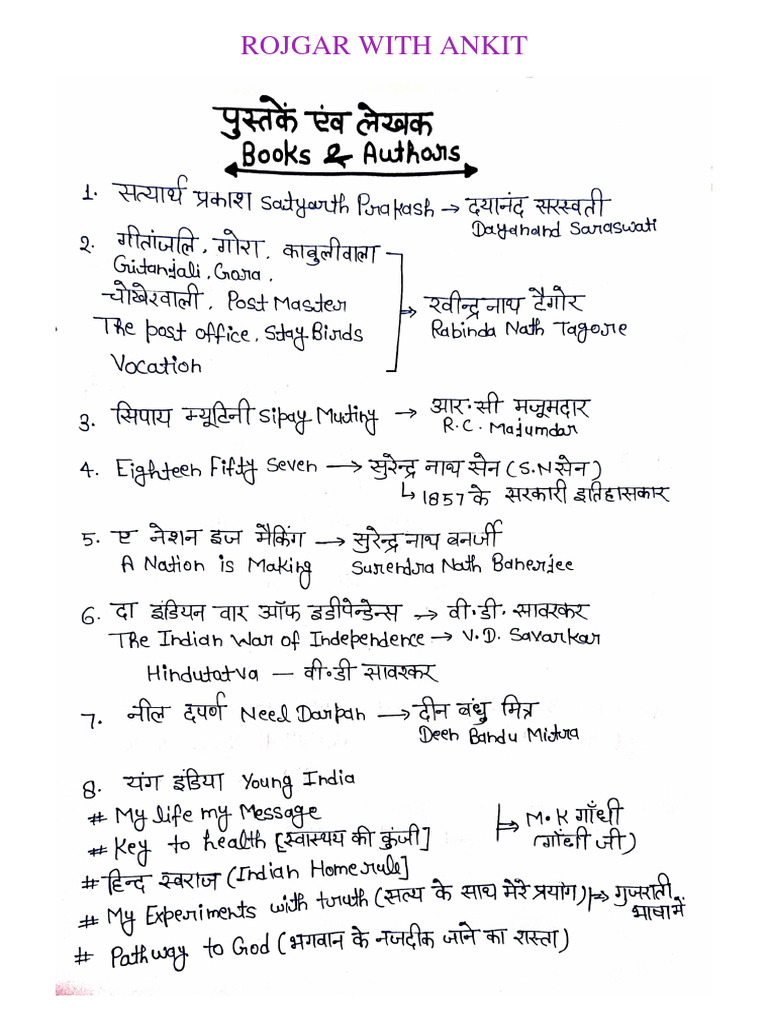 ROJGAR WITH ANKIT
पुस्तकें एंव लेखक
Books & Authors
1. सत्यार्थ प्रकाश Satyarth Prakash → दयानंद सरस्वती
Dayanand Saraswati
2. गीतांजलि, गोरा, काबुलीवाला
Gitanjali, Gora,
चोखेरवाली, Post Master → रवीन्द्र नाथ टैगोर
The post office, Stay Birds Rabinda Nath Tagore
Vocation
3. सिपाय म्यूटिनी Sipay Mutiny → आर.सी मजूमदार
R.C. Majumdar
4. Eighteen Fifty Seven → सुरेन्द्र नाथ सेन (S.N सेन)
↳ 1857 के सरकारी इतिहासकार
5. ए नेशन इज मैकिंग → सुरेन्द्र नाथ बनर्जी
A Nation is Making Surendra Nath Banerjee
6. दा इंडियन वार ऑफ इडीपेन्डेन्स → वी.डी. सावरकर
The Indian War of Independence → V.D. Savarkar
Hindutatva — वी.डी सावरकर
7. नील दपर्ण Neel Darpan → दीन बंधु मित्र
Deen Bandu Mitra
8. यंग इंडिया Young India
# My life my Message → M.K गाँधी
# Key to health [स्वास्थय की कुंजी] (गाँधी जी)
# हिन्द स्वराज (Indian Home rule]
# My Experiments with truth (सत्य के साथ मेरे प्रयोग) → गुजराती
भाषा में
# Pathway to God (भगवान के नजदीक जाने का रास्ता)